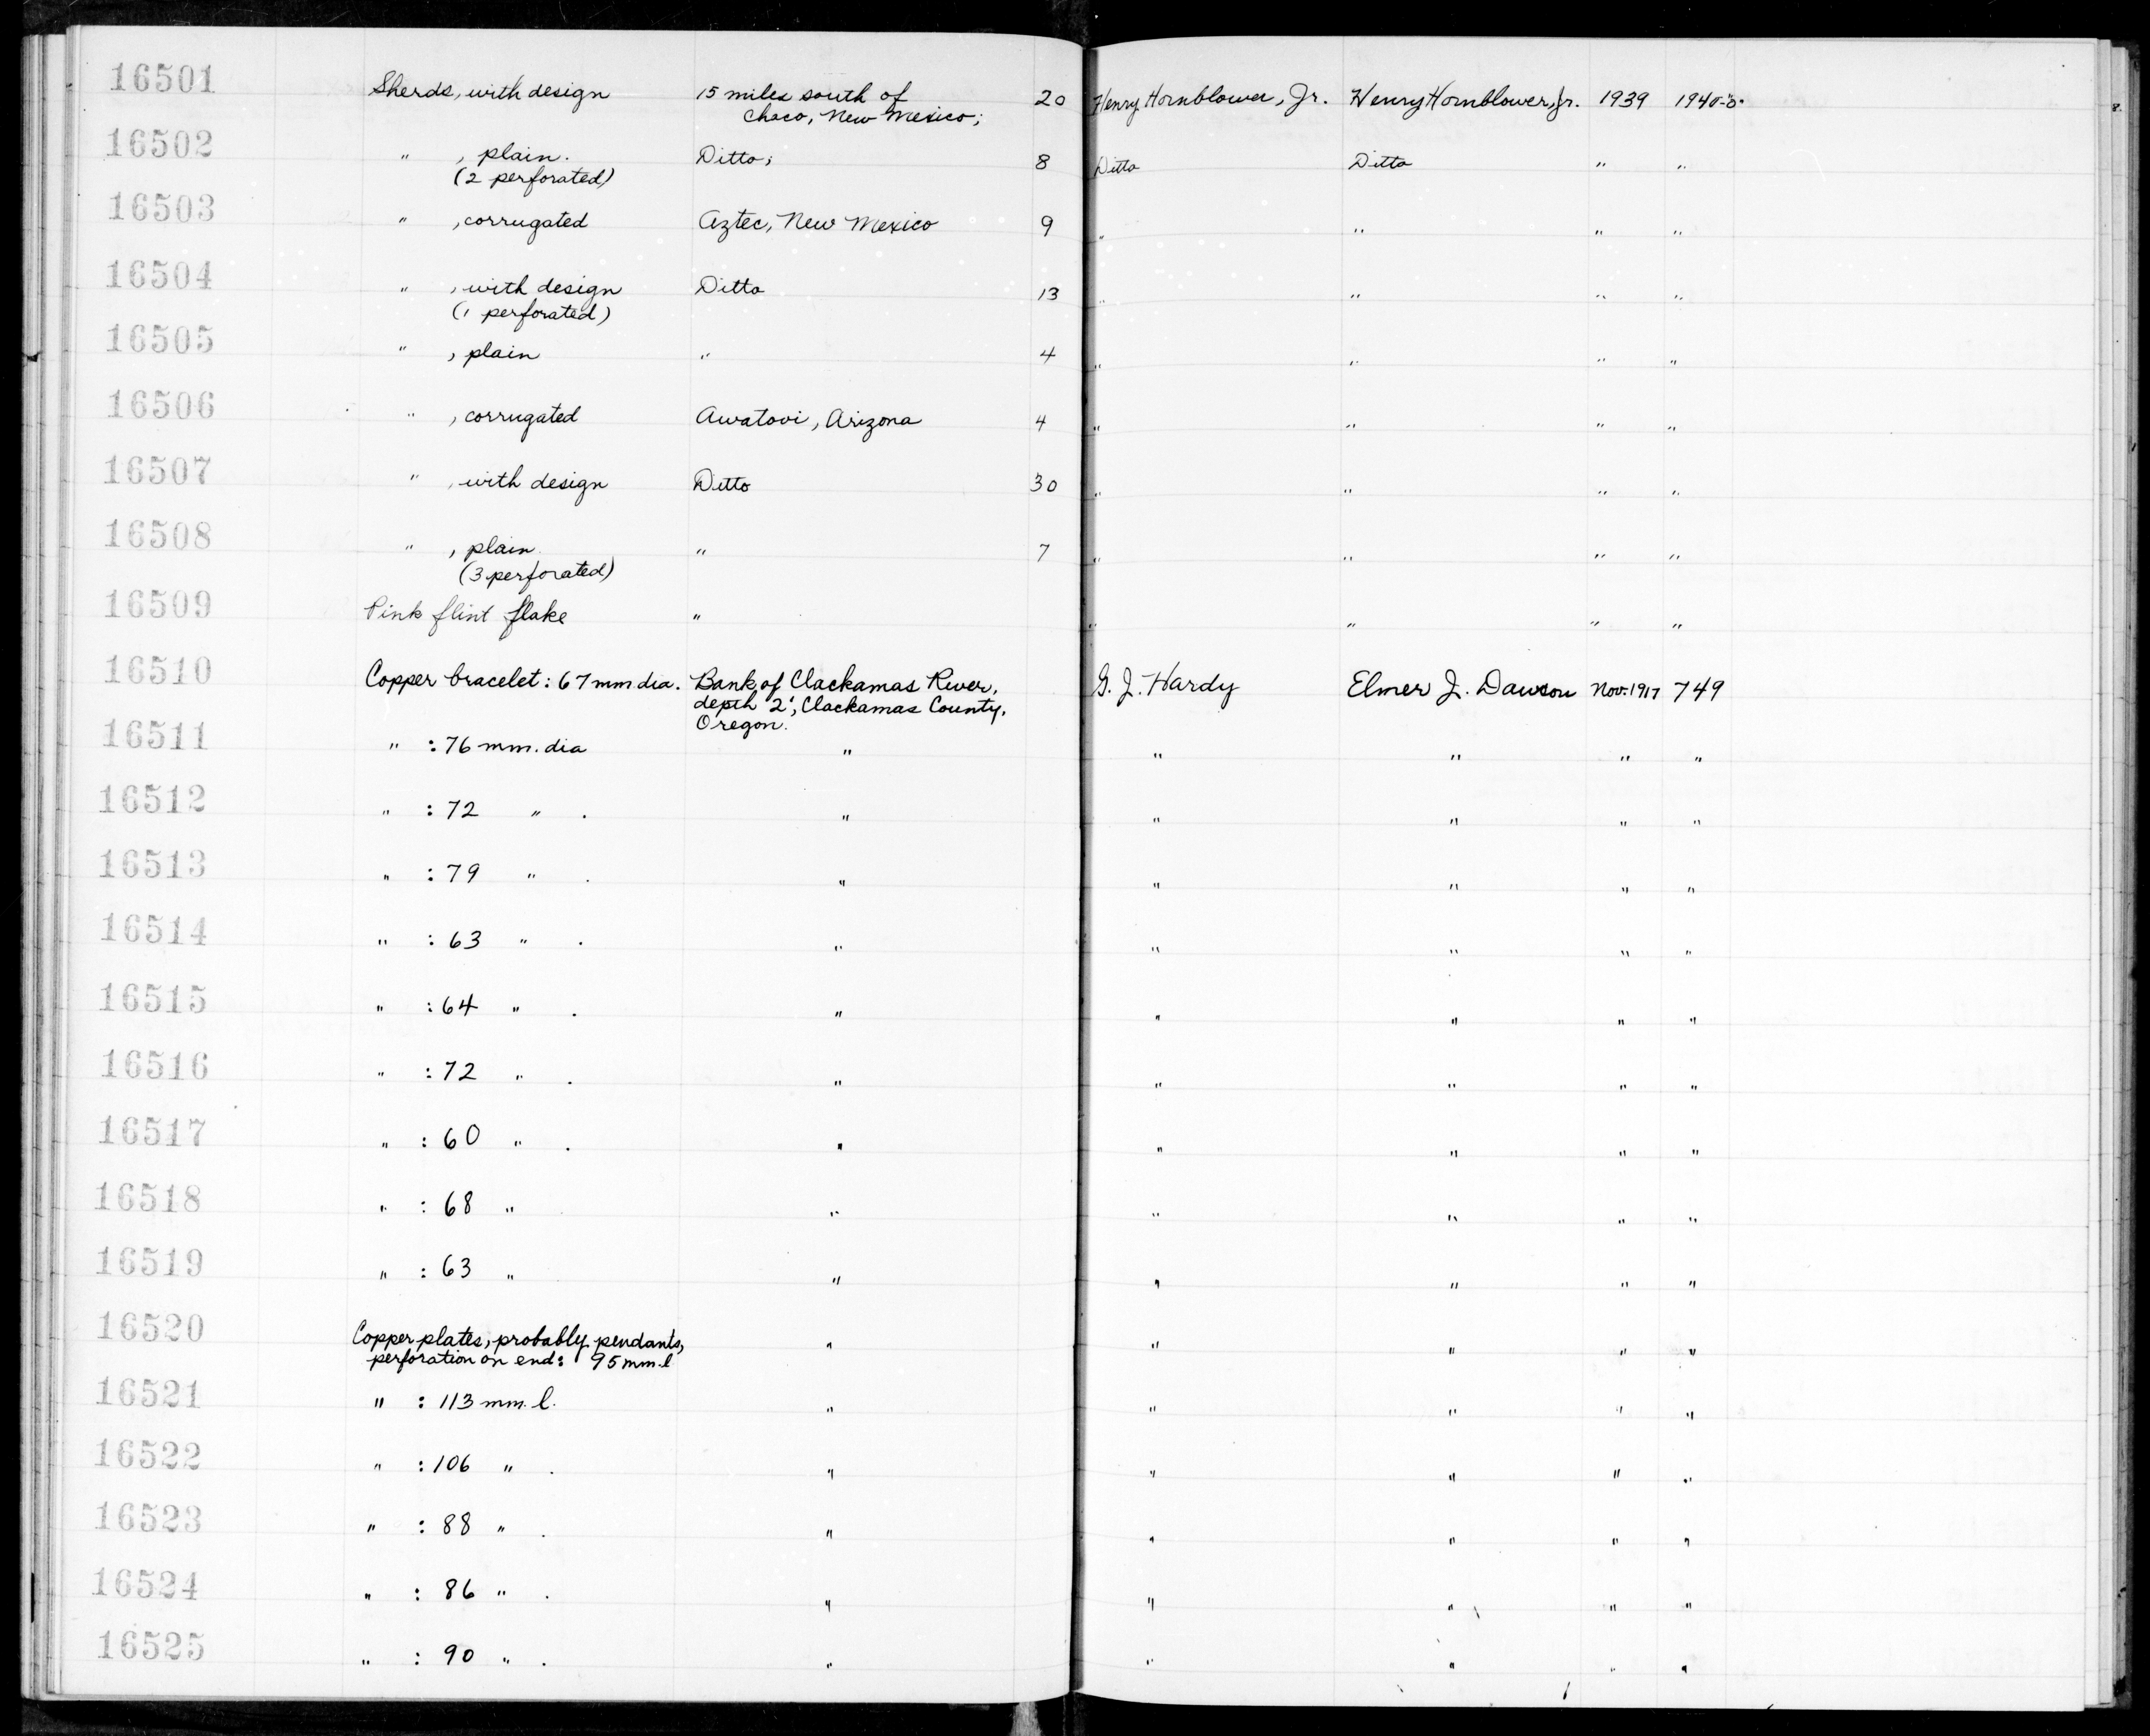 16501 Sherds, with design 15 miles south of 20 Henry Hornblower, Jr. Henry Hornblower, Jr. 1939
Chaco, New Mexico;
16502 " , plain. Ditto; 8 Ditto Ditto " "
(2 perforated)
16503 " , corrugated Aztec, New Mexico 9 " " " "
16504 " , with design Ditto 13 " " " "
(1 perforated)
16505 " , plain " 4 " " " "
16506 " , corrugated Awatovi, Arizona 4 " " " "
16507 " , with design Ditto 30 " " " "
16508 " , plain " 7 " " " "
(3 perforated)
16509 Pink flint flake " " " " "
16510 Copper bracelet: 67 mm dia. Bank of Clackamas River, G. J. Hardy Elmer J. Dawson Nov. 1917 749
depth 2'; Clackamas County,
Oregon.
16511 " : 76 mm. dia " " " " "
16512 " : 72 " . " " " " "
16513 " : 79 " . " " " " "
16514 " : 63 " . " " " " "
16515 " : 64 " . " " " " "
16516 " : 72 " . " " " " "
16517 " : 60 " . " " " " "
16518 " : 68 " " " " " "
16519 " : 63 " " " " " "
16520 Copper plates, probably pendants, " " " " "
perforation on end: 95 mm. l
16521 " : 113 mm. l. " " " " "
16522 " : 106 " . " " " " "
16523 " : 88 " . " " " " "
16524 " : 86 " . " " " " "
16525 " : 90 " . " " " " "